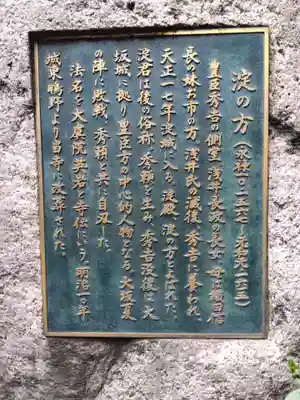 淀の方(永禄一〇・一五六七〜元和元・一六一五)
豊臣秀吉の側室。浅井長政の長女、母は織田信
長の妹お市の方。浅井氏の滅後、秀吉に養われ、
天正一七年淀城に入り淀殿、淀の方とよばれた。
淀君は後の俗称。秀頼を生み、秀吉没後は大
坂城に拠り豊臣方の中心的人物となる。大坂夏
の陣に敗戦、秀頼と共に自刃した。
法名を大虞院英岩と寺伝にいう。明治一〇年
城東鴫野より当寺に改葬された。